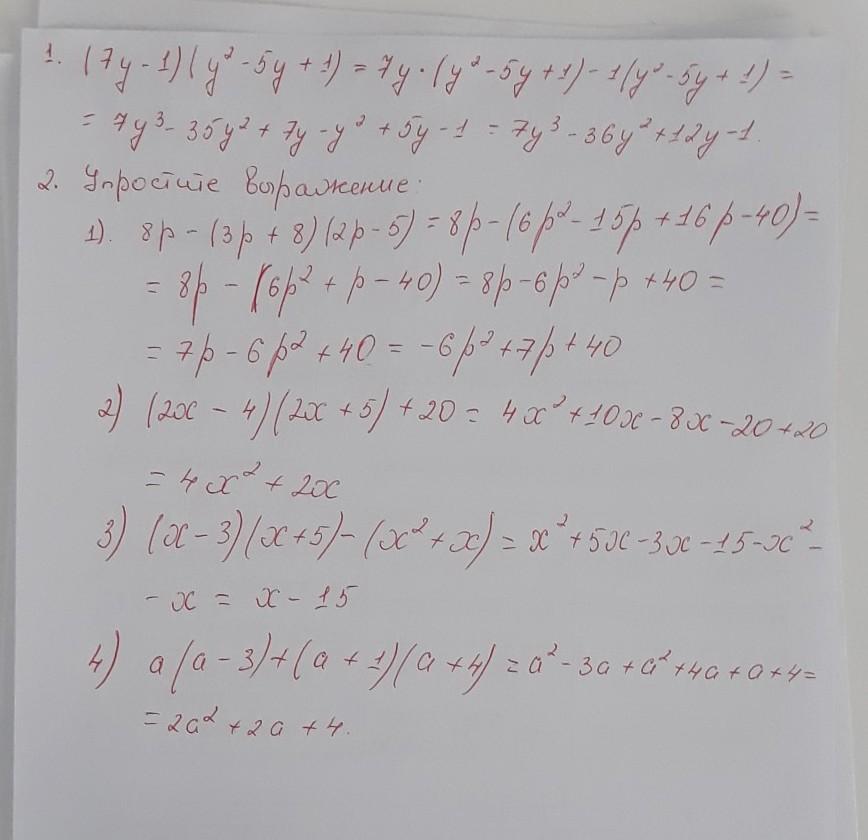 1. (7y-1)(y²-5y+1) = 7y·(y²-5y+1)-1(y²-5y+1) =
= 7y³-35y²+7y-y²+5y-1 = 7y³-36y²+12y-1.
2. Упростите выражение:
1). 8p-(3p+8)(2p-5) = 8p-(6p²-15p+16p-40) =
= 8p-(6p²+p-40) = 8p-6p²-p+40 =
= 7p-6p²+40 = -6p²+7p+40
2) (2x-4)(2x+5)+20 = 4x²+10x-8x-20+20
= 4x²+2x
3) (x-3)(x+5)-(x²+x) = x²+5x-3x-15-x²-
-x = x-15
4) a(a-3)+(a+1)(a+4) = a²-3a+a²+4a+a+4=
= 2a²+2a+4.